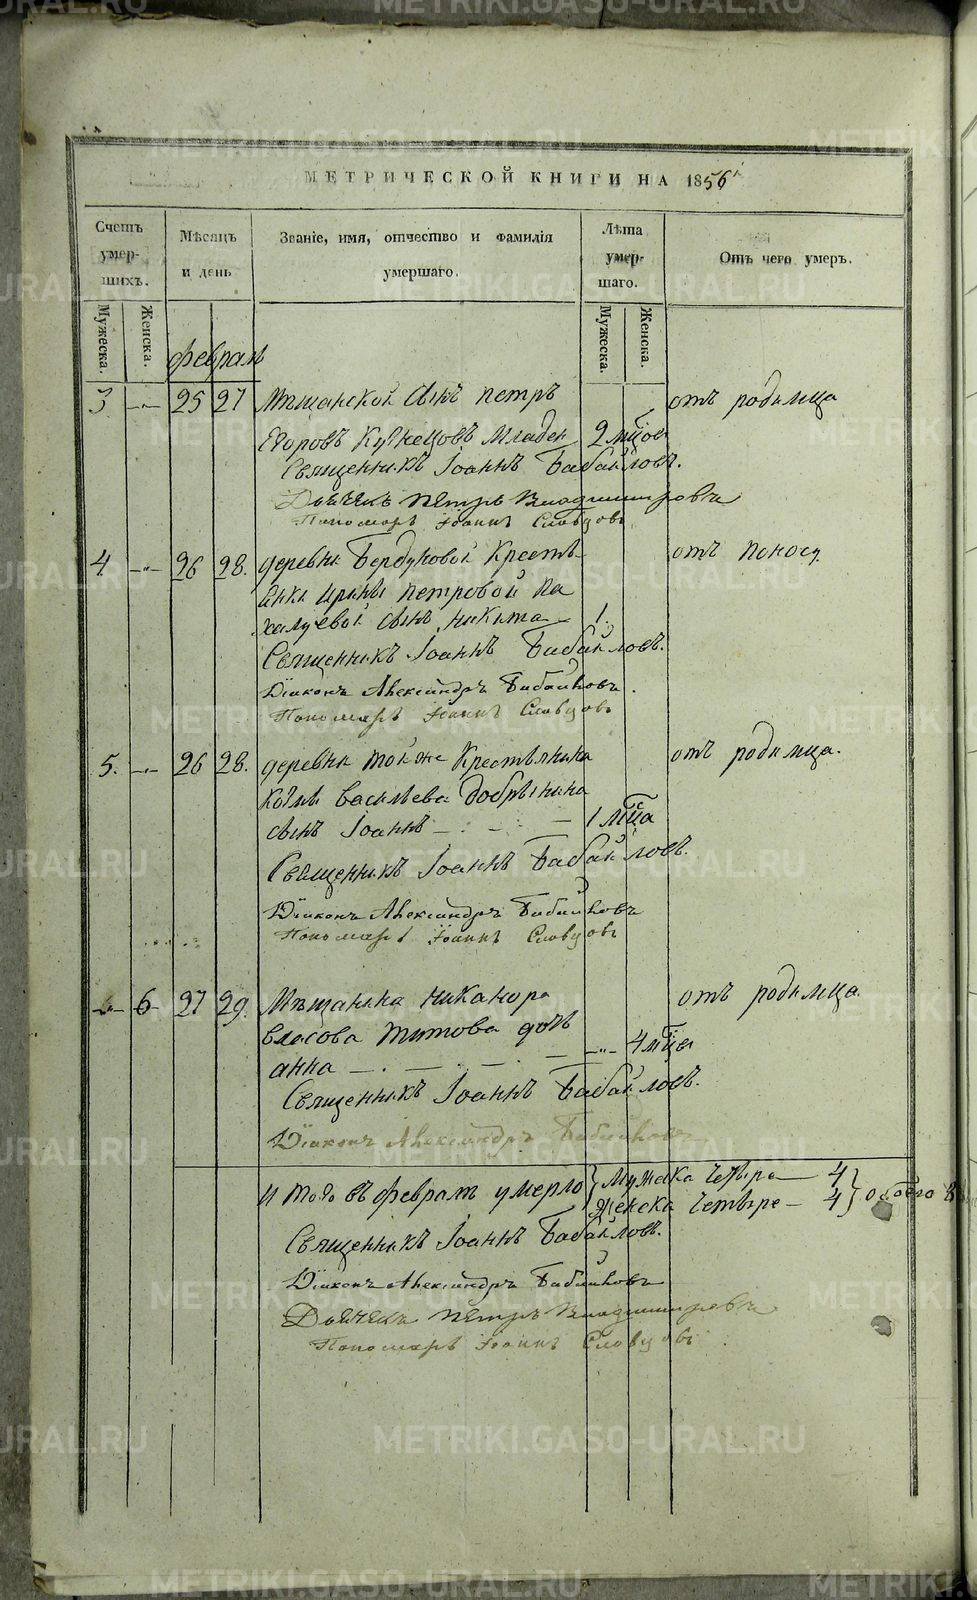 МЕТРИЧЕСКОЙ КНИГИ НА 1856
Счетъ умершихъ.
Мужеска.
Женска.
Мѣсяцъ и день
Званіе, имя, отчество и фамилія умершаго.
Лѣта умершаго.
Мужеска.
Женска.
Отъ чего умеръ.
февраль
3 -"- 25 27 Мѣщанской сынъ Петръ отъ родимца
Егоровъ Кузнецовъ младен 2 мцовъ
Священникъ Іоаннъ Бабайловъ.
Дьячекъ Петръ Владимировъ
Пономарь Іоаннъ Словцовъ
4. -"- 26 28. деревни Бердуковой Крестья отъ поноса.
нки Ирины Петровой Па
халуевой сынъ Никита 1.
Священникъ Іоаннъ Бабайловъ.
Діаконъ Александръ Бабайловъ.
Пономарь Іоаннъ Словцовъ
5. -"- 26 28. деревни той же Крестьянина отъ родимца.
Козмы Васильева Добрынина
сынъ Іоаннъ 1 мца
Священникъ Іоаннъ Бабайловъ.
Діаконъ Александръ Бабайловъ
Пономарь Іоаннъ Словцовъ
-"- 6 27 29. Мѣщанина Никанора отъ родимца.
Власова Титова дочь
Анна -"- 4 мца
Священникъ Іоаннъ Бабайловъ.
Діаконъ Александръ Бабайловъ
И того въ февралѣ умерло Мужеска четыре 4
Женска четыре 4 обоего 8
Священникъ Іоаннъ Бабайловъ.
Діаконъ Александръ Бабайловъ
Дьячекъ Петръ Владимировъ
Пономарь Іоаннъ Словцовъ
METRIKI.GASO-URAL.RU